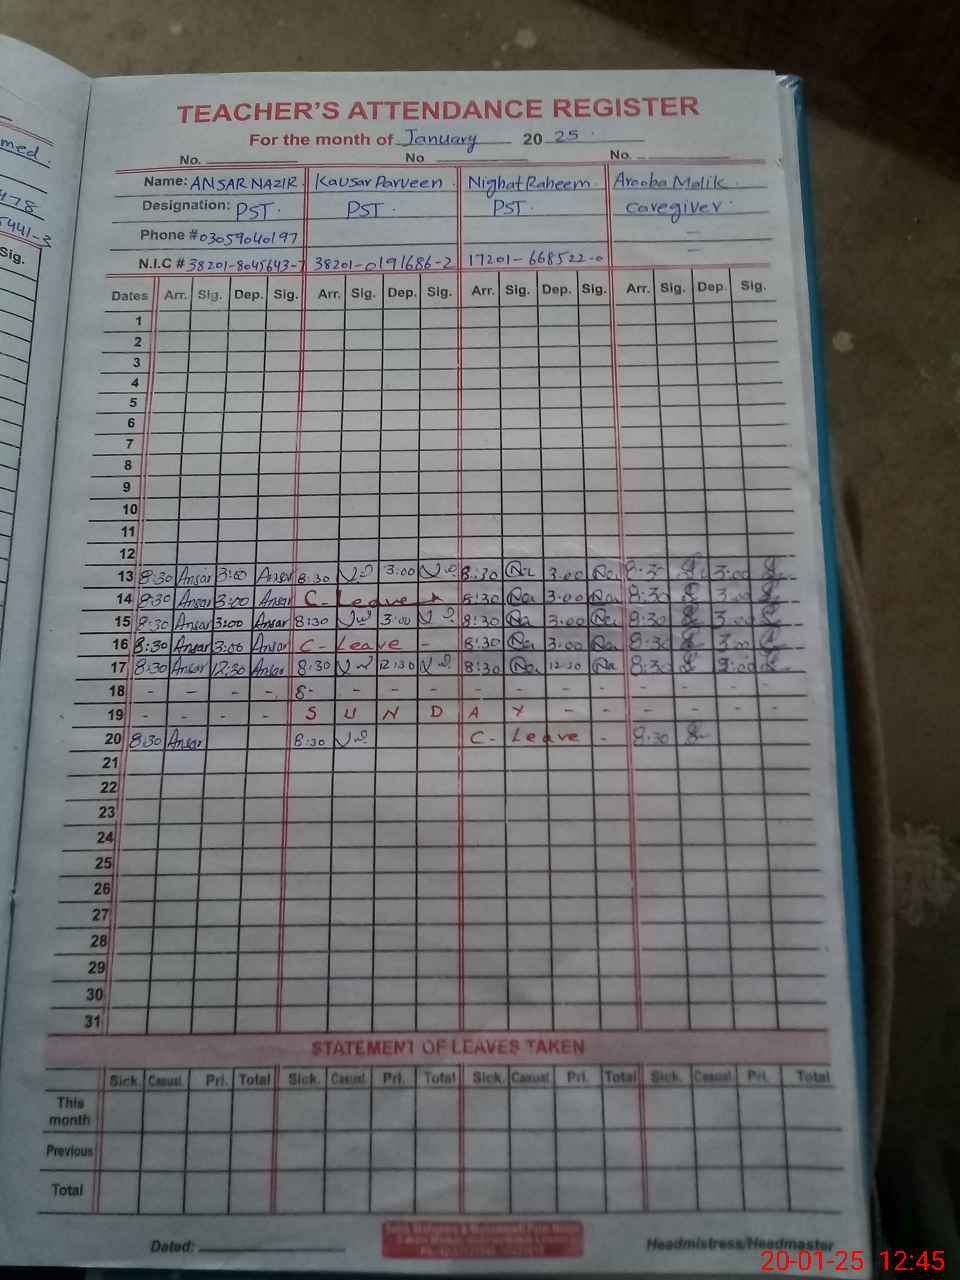 med.
478
5441-3
Sig.
TEACHER'S ATTENDANCE REGISTER
For the month of January 2025.
No. No No.
Name: ANSAR NAZIR. Kausar Parveen. Nighat Raheem. Arooba Malik.
Designation: PST. PST. PST. Caregiver.
Phone # 03059040197 –
N.I.C # 38201-8045643-7 38201-0191686-2 17201-668522-0 –
Dates Arr. Sig. Dep. Sig. Arr. Sig. Dep. Sig. Arr. Sig. Dep. Sig. Arr. Sig. Dep. Sig.
1
2
3
4
5
6
7
8
9
10
11
12
13 8:30 Ansar 3:00 Ansar 8:30 3:00 8:30 3:00 8:30 3:00
14 8:30 Ansar 3:00 Ansar C-Leave 8:30 3:00 8:30 3:00
15 8:30 Ansar 3:00 Ansar 8:30 3:00 8:30 3:00 8:30 3:00
16 8:30 Ansar 3:00 Ansar C-Leave - 8:30 3:00 8:30 3:00
17 8:30 Ansar 12:30 Ansar 8:30 12:30 8:30 12:30 8:30
18 - - - - 8- - - - - - - - - - - -
19 - - - - S U N D A Y - - - - - -
20 8:30 Ansar 8:30 C- Leave - 8:30
21
22
23
24
25
26
27
28
29
30
31
STATEMENT OF LEAVES TAKEN
Sick. Casual. Pri. Total Sick. Casual. Pri. Total Sick. Casual. Pri. Total Sick. Casual. Pri. Total
This month
Previous
Total
Dated: Headmistress/Headmaster
20-01-25 12:45